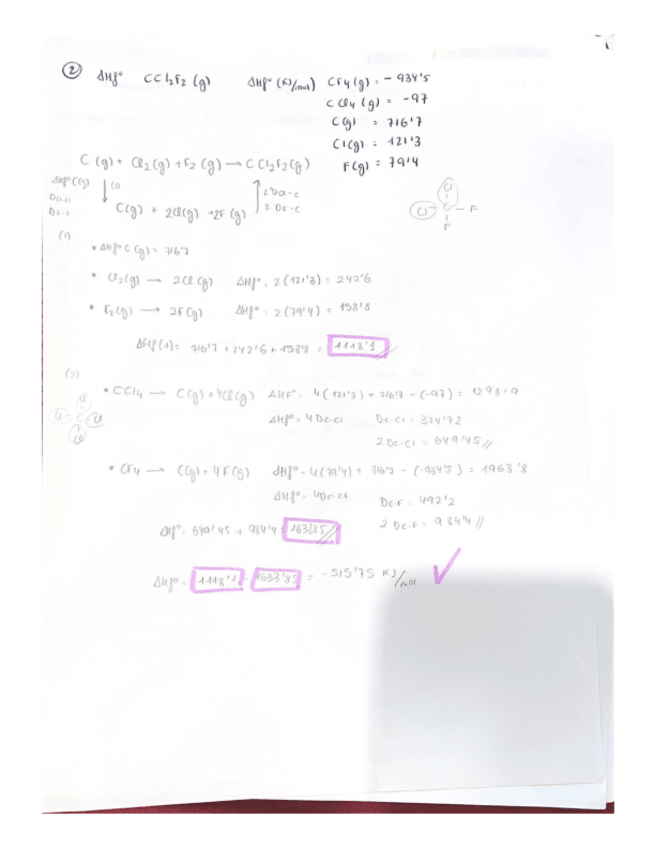 ② ΔHf° CCl2F2 (g) ΔHf° (KJ/mol) CF4 (g) = -934'5
CCl4 (g) = -97
C(g) = 716'7
Cl(g) = 121'3
F(g) = 79'4
C (g) + Cl2(g) + F2 (g) → CCl2F2(g)
ΔHf° C(g) ↓ (1) ↑ 2 DCl-C
2 DF-C
C(g) + 2Cl(g) + 2F (g)
Cl
Cl - C - F
F
(1)
• ΔHf° C (g) = 716'7
• Cl2(g) → 2Cl (g) ΔHf° = 2 (121'3) = 242'6
• F2(g) → 2F(g) ΔHf° = 2 (79'4) = 158'8
ΔHf°(1) = 716'7 + 242'6 + 158'8 = 1118'1
(2)
• CCl4 → C(g) + 4Cl(g) ΔHF° = 4(121'3) + 716'7 - (-97) = 1298'9
ΔHf° = 4 DC-Cl DC-Cl = 324'72
2 DC-Cl = 649'45
• CF4 → C(g) + 4 F(g) ΔHf° = 4(79'4) + 716'7 - (-934'5) = 1968'8
DC-F = 492'2
2 DC-F = 984'4
ΔHf° = 649'45 + 984'4 = 1633'85
ΔHf° = 1118'1 - 1633'85 = -515'75 KJ/mol ✓